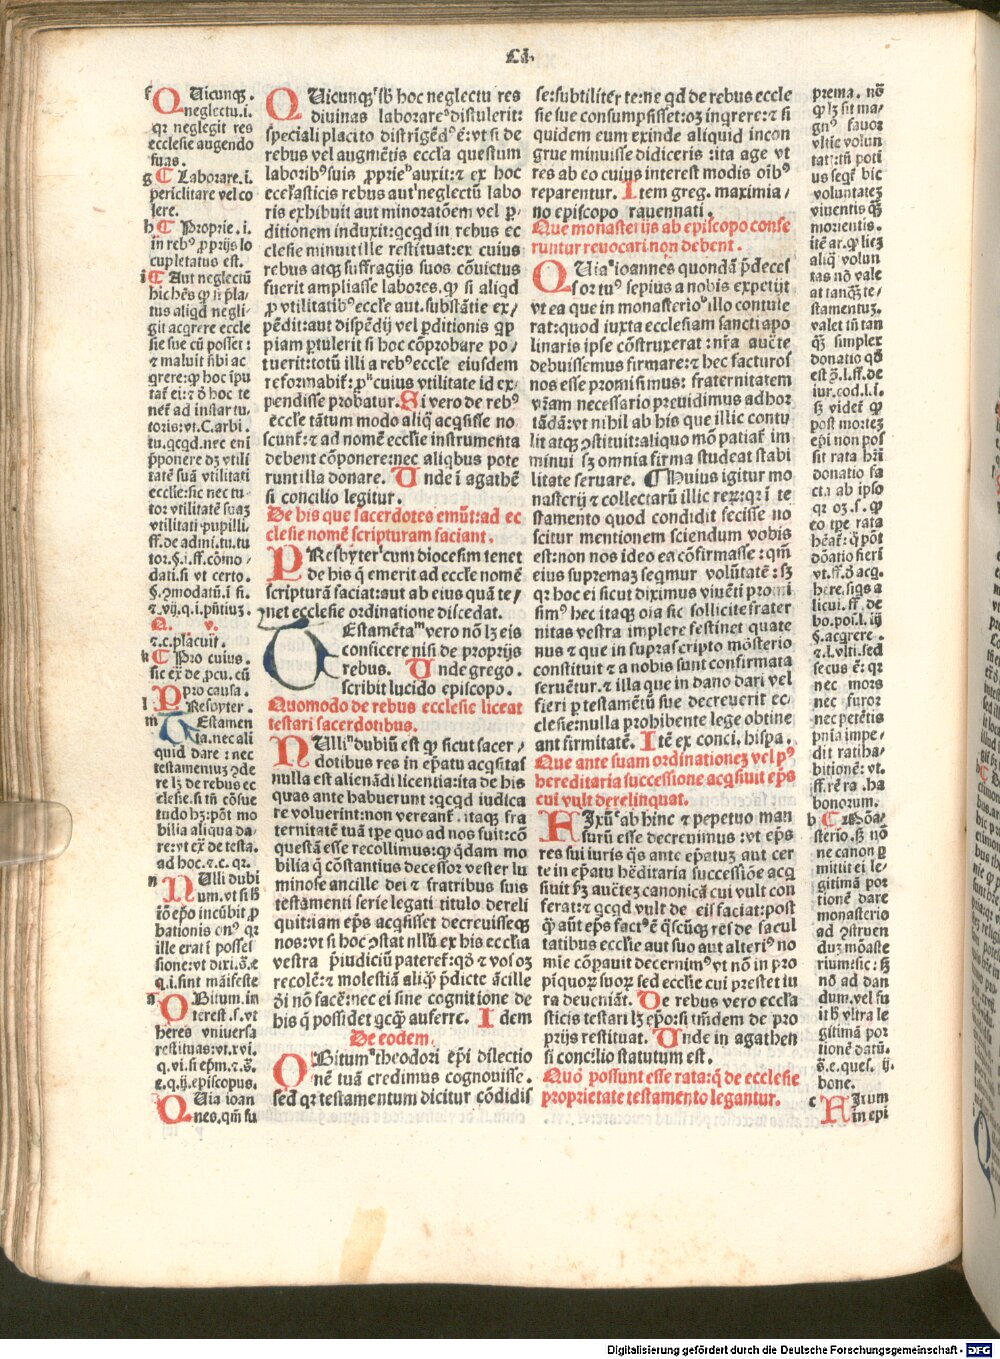 Cā.
f QUicunq̄.
neglectu.i.
qꝛ neglegit res
ecclesie augendo
suas.
g ¶ Laborare.i.
periclitare vel co
lere.
h ¶ Proprie.i.
in rebꝰ ꝓprijs lo
cupletatus est.
i ¶ Aut neglectū
hic hēs ꝙ si p̄la-
tus aliqd negli-
git acqrere eccle
sie sue cū posset:
⁊ maluit sibi ac
qrere: ꝙ hoc īpu
tat̄ ei: ⁊ ꝺ hoc te
net̄ ad instar tu.
toris: vt.C.arbi.
tu.qcqd.nec eni
p̄ponere dꝫ vtili
tatē suā vtilitati
ecclie: sic nec tu-
tor vtilitatē suaꝫ
vtilitati pupilli.
ff.de admi.tu.tu
tor.§.i.ff.cōmo
dati.si vt certo.
§.ꝯmodatū.i fi.
⁊.vij.q.i.pn̄tiuꝫ.
⁊.c.placuit.
k ¶ Pro cuius.
sic ex̄ de.pcu.cū
pro causa.
l PResbyter.
m TEstamen
ta.nec ali
quid dare: nec
testamentuꝫ ꝯde
re lꝫ de rebus ec
clesie.si tn̄ cōsue
tudo hꝫ: pōt mo
bilia aliqua da-
re: vt ex̄ de testa.
ad hoc.⁊.c.qꝛ.
n NUlli dubi
um.vt si lꝫ
īō ep̄o incūbit ꝓ
bationis onꝰ qꝛ
ille erat i posses
sione: vt dixi.s̄.e
q.i.sint māifeste
a OBitum.in
terest.s.vt
heres vniuersa
restituas: vt.xvi.
q.vi.si ep̄m.⁊.s̄.
e.q.ij.episcopus.
QUia ioan
nes.qm̄ su
QUicunqꝫ sb̄ hoc neglectu res
diuinas laborareꝰ distulerit:
speciali placito distrigēdꝰ ē: vt si de
rebus vel augmētis eccl̄a questum
laboribꝰ suis ꝓprieᵃ auxit: ⁊ ex hoc
ecclesiasticis rebus autⁱ neglectū labo
ris exhibuit aut minoratōem vel ꝑ-
ditionem induxit: qcqd in rebus ec
clesie minuit ille restituat: ex cuius
rebus atqꝫ suffragijs suos cōuictus
fuerit ampliasse labores. ꝙ si aliqd
ꝓ vtilitatibꝰ eccle aut.substātie ex-
pēdit: aut dispēdij vel ꝑditionis ꝙꝑ
piam ꝑtulerit si hoc cōprobare po-
tuerit: totū illi a rebꝰ eccle eiusdem
reformabit̄: ꝓᵏ cuius vtilitate id ex-
pendisse probatur. Si vero de rebꝰ
eccle tātum modo aliq̄ acqsisse no
scunt̄: ⁊ ad nomē ecclie instrumenta
debent cōponere: nec aliqbus pote
runt illa donare. Unde i agathē
si concilio legitur.
De his que sacerdotes emūt: ad ec
clesie nomē scripturam faciant.
PResbyterˡ cum diocesim tenet
de his q̄ emerit ad eccle nomē
scripturā faciat: aut ab eius quā te-
net ecclesie ordinatione discedat.
TEstamētaᵐ vero nō lꝫ eis
conficere nisi de proprijs
rebus. Unde grego.
scribit lucido episcopo.
Quomodo de rebus ecclesie liceat
testari sacerdotibus.
NUlliⁿ dubiū est ꝙ sicut sacer-
dotibus res in ep̄atu acqsitas
nulla est alienādi licentia: ita de his
quas ante habuerunt: qcqd iudica
re voluerint: non vereant̄. itaqꝫ fra
ternitatē tuā ipe quo ad nos suit: cō
questā esse recollimus: ꝙ q̄dam mo
bilia q̄ cōstantius decessor vester lu
minose ancille dei ⁊ fratribus suis
testāmenti serie legati titulo dereli
quit: iam ep̄s acqsisset decreuisseqꝫ
nos: vt si hoc ꝯstat nllm̄ ex his ecclia
vestra p̄iudiciū pateret̄: qd̄ ⁊ vos oꝫ
recolē: ⁊ molestiā aliq̄ p̄dicte ācille
ꝺi nō facē: nec ei sine cognitione de
his q̄ possidet qcq̄ auferre. Idem
De eodem.
OBitumᵃ theodori ep̄i dilectio
nē tuā credimus cognouisse.
sed qꝛ testamentum dicitur cōdidis
se: subtiliter te: ne qd de rebus eccle
sie sue consumpsisset: oꝫ inqrere: ⁊ si
quidem eum exinde aliquid incon
grue minuisse didiceris: ita age vt
res ab eo cuius interest modis oībꝰ
reparentur. Item greg. maximia-
no episcopo rauennati.
Que monasterijs ab episcopo confe
runtur reuocari non debent.
QUiaᵃ ioannes quondā p̄deces
sor tuꝰ sepius a nobis expetijt
vt ea que in monasterioᵇ illo contule
rat: quod iuxta ecclesiam sancti apo
linaris ipse cōstruxerat: nr̄a aucte
debuissemus firmare: ⁊ hec facturos
nos esse promisimus: fraternitatem
vr̄am necessario preuidimus adhor
tādā: vt nihil ab his que illic contu
lit atqꝫ ꝯstituit: aliquo mō patiat̄ im
minui sꝫ omnia firma studeat stabi
litate seruare. ¶ Huius igitur mo
nasterij ⁊ collectarū illic rerꝫ: qꝛ i te
stamento quod condidit fecisse no
scitur mentionem sciendum vobis
est: non nos ideo ea cōfirmasse: qm̄
eius supremaꝫ seqmur volūtatē: sꝫ
qꝛ hoc ei sicut diximus viuēti promi
simꝰ hec itaqꝫ oia sic sollicite frater
nitas vestra implere festinet quate
nus ⁊ que in suprascripto mōsterio
constituit ⁊ a nobis sunt confirmata
seruētur. ⁊ illa que in dano dari vel
fieri ꝑ testamētū sue decreuerit ec-
clesie: nulla prohibente lege obtine
ant firmitatē. Itē ex conci. hispa.
Que ante suam ordinationeꝫ vel ꝑꝰ
hereditaria successione acqsiuit ep̄s
cui vult derelinquat.
FIxūᶜ ab hinc ⁊ perpetuo man
surū esse decreuimus: vt ep̄s
res sui iuris q̄s ante ep̄atuꝫ aut cer
te in ep̄atu hēditaria successiōe acq
siuit ẜꝫ auctēꝫ canonicā cui vult con
ferat: ⁊ qcqd vult de eis faciat: post
q̄ aūt ep̄s factꝰ ē q̄scūqꝫ res de facul
tatibus ecclie aut suo aut alteriꝰ no
mie cōꝑauit decernimꝰ vt nō in pro
piquorꝫ suorꝫ sed ecclie cui prestet iu
ra deueniāt. De rebus vero eccl̄esia
sticis testari lꝫ ep̄o: si tm̄dem de pro
prijs restituat. Unde in agathen
si concilio statutum est.
Quō possunt esse rata: q̄ de ecclesie
proprietate testamento legantur.
prema. nō
ꝙ lꝫ sit ma-
gnꝰ fauor
vltie volun
tat: tn̄ poti
us seqt̄ hic
voluntateꝫ
viuentis q̄ꝫ
morientis.
itē ar. ꝙ licꝫ
aliq̄ volun
tas nō vale
at tanqꝫ te-
stamentuꝫ.
valet tn̄ tan
q̄ꝫ simplex
donatio qd̄
est ꝫ.l.ff.de
iur.cod.l.i.
sꝫ videt̄ ꝙ
post morteꝫ
epi non pos
sit rata hr̄i
donatio fa
cta ab ipso
qꝛ oꝫ.s.ꝙ
eo tꝑe rata
hēat̄: q̄ pōt
dōatio fieri
vt.ff.ꝺ acq.
here.sigs a
licui.ff.de
bo.pos.l.iij
§.acqrere.
⁊.l.vlti.sed
secus ē: qꝛ
nec mors
nec furor
nec petētis
pnīa impe-
dit ratiha-
bitionē: vt.
ff.rē ra.ha
bonorum.
b ¶ Mōa-
sterio.sꝫ nō
ne canon ꝑ
mittit ei le-
gitimā por
tionē dare
monasterio
ad ꝯstruen
duꝫ mōaste
rium: sic: sꝫ
nō ad dan
dum.vel su
it hꝰ vltra le
gitimā por
tionē datū.
s̄.e.ques.ij.
bone.
c FIxum
in epi
Digitalisierung gefördert durch die Deutsche Forschungsgemeinschaft - DFG